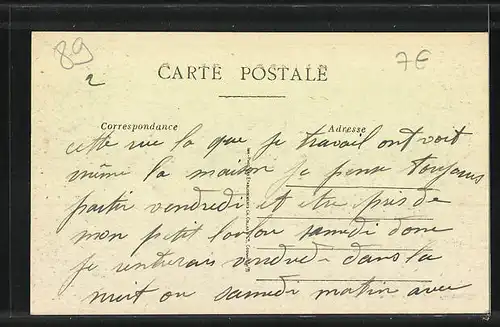 89
2
7€
CARTE POSTALE
Correspondance
Adresse
cette rue la que je travail ont voit
même la maison je pense toujours
partir vendredi et etre pres de
mon petit loulou samedi donc
je rentrerais vendredi dans la
nuit ou samedi matin avec